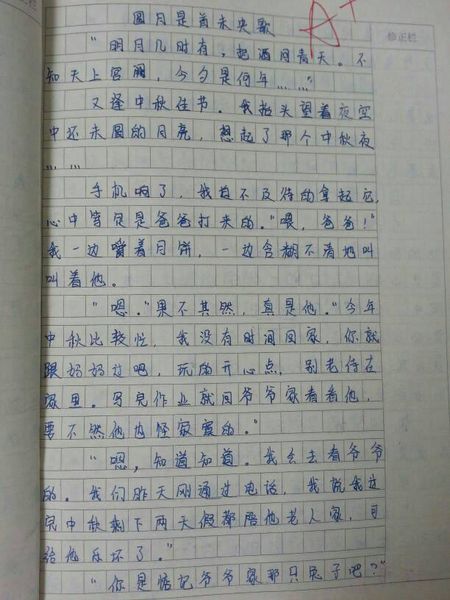 圆月是首未央歌
A+
修正栏
“明月几时有,把酒问青天。不
知天上宫阙,今夕是何年……”
又逢中秋佳节。我抬头望着夜空
中还未圆的月亮,想起了那个中秋夜
……
手机响了,我迫不及待的拿起它,
心中笃定是爸爸打来的。“喂,爸爸!”
我一边嚼着月饼,一边含糊不清地叫
叫着他。
“嗯。”果不其然,真是他。“今年
中秋比较忙,我没有时间回家,你就
跟妈妈过吧,玩的开心点,别老待在
家里。写完作业就回爷爷家看看他,
要不然他也怪寂寞的。”
“嗯,知道知道。我会去看爷爷
的。我们昨天刚通过电话,我说我过
完中秋剩下两天假都陪他老人家,可
给他乐坏了。”
“你是惦记爷爷家那只兔子吧?”